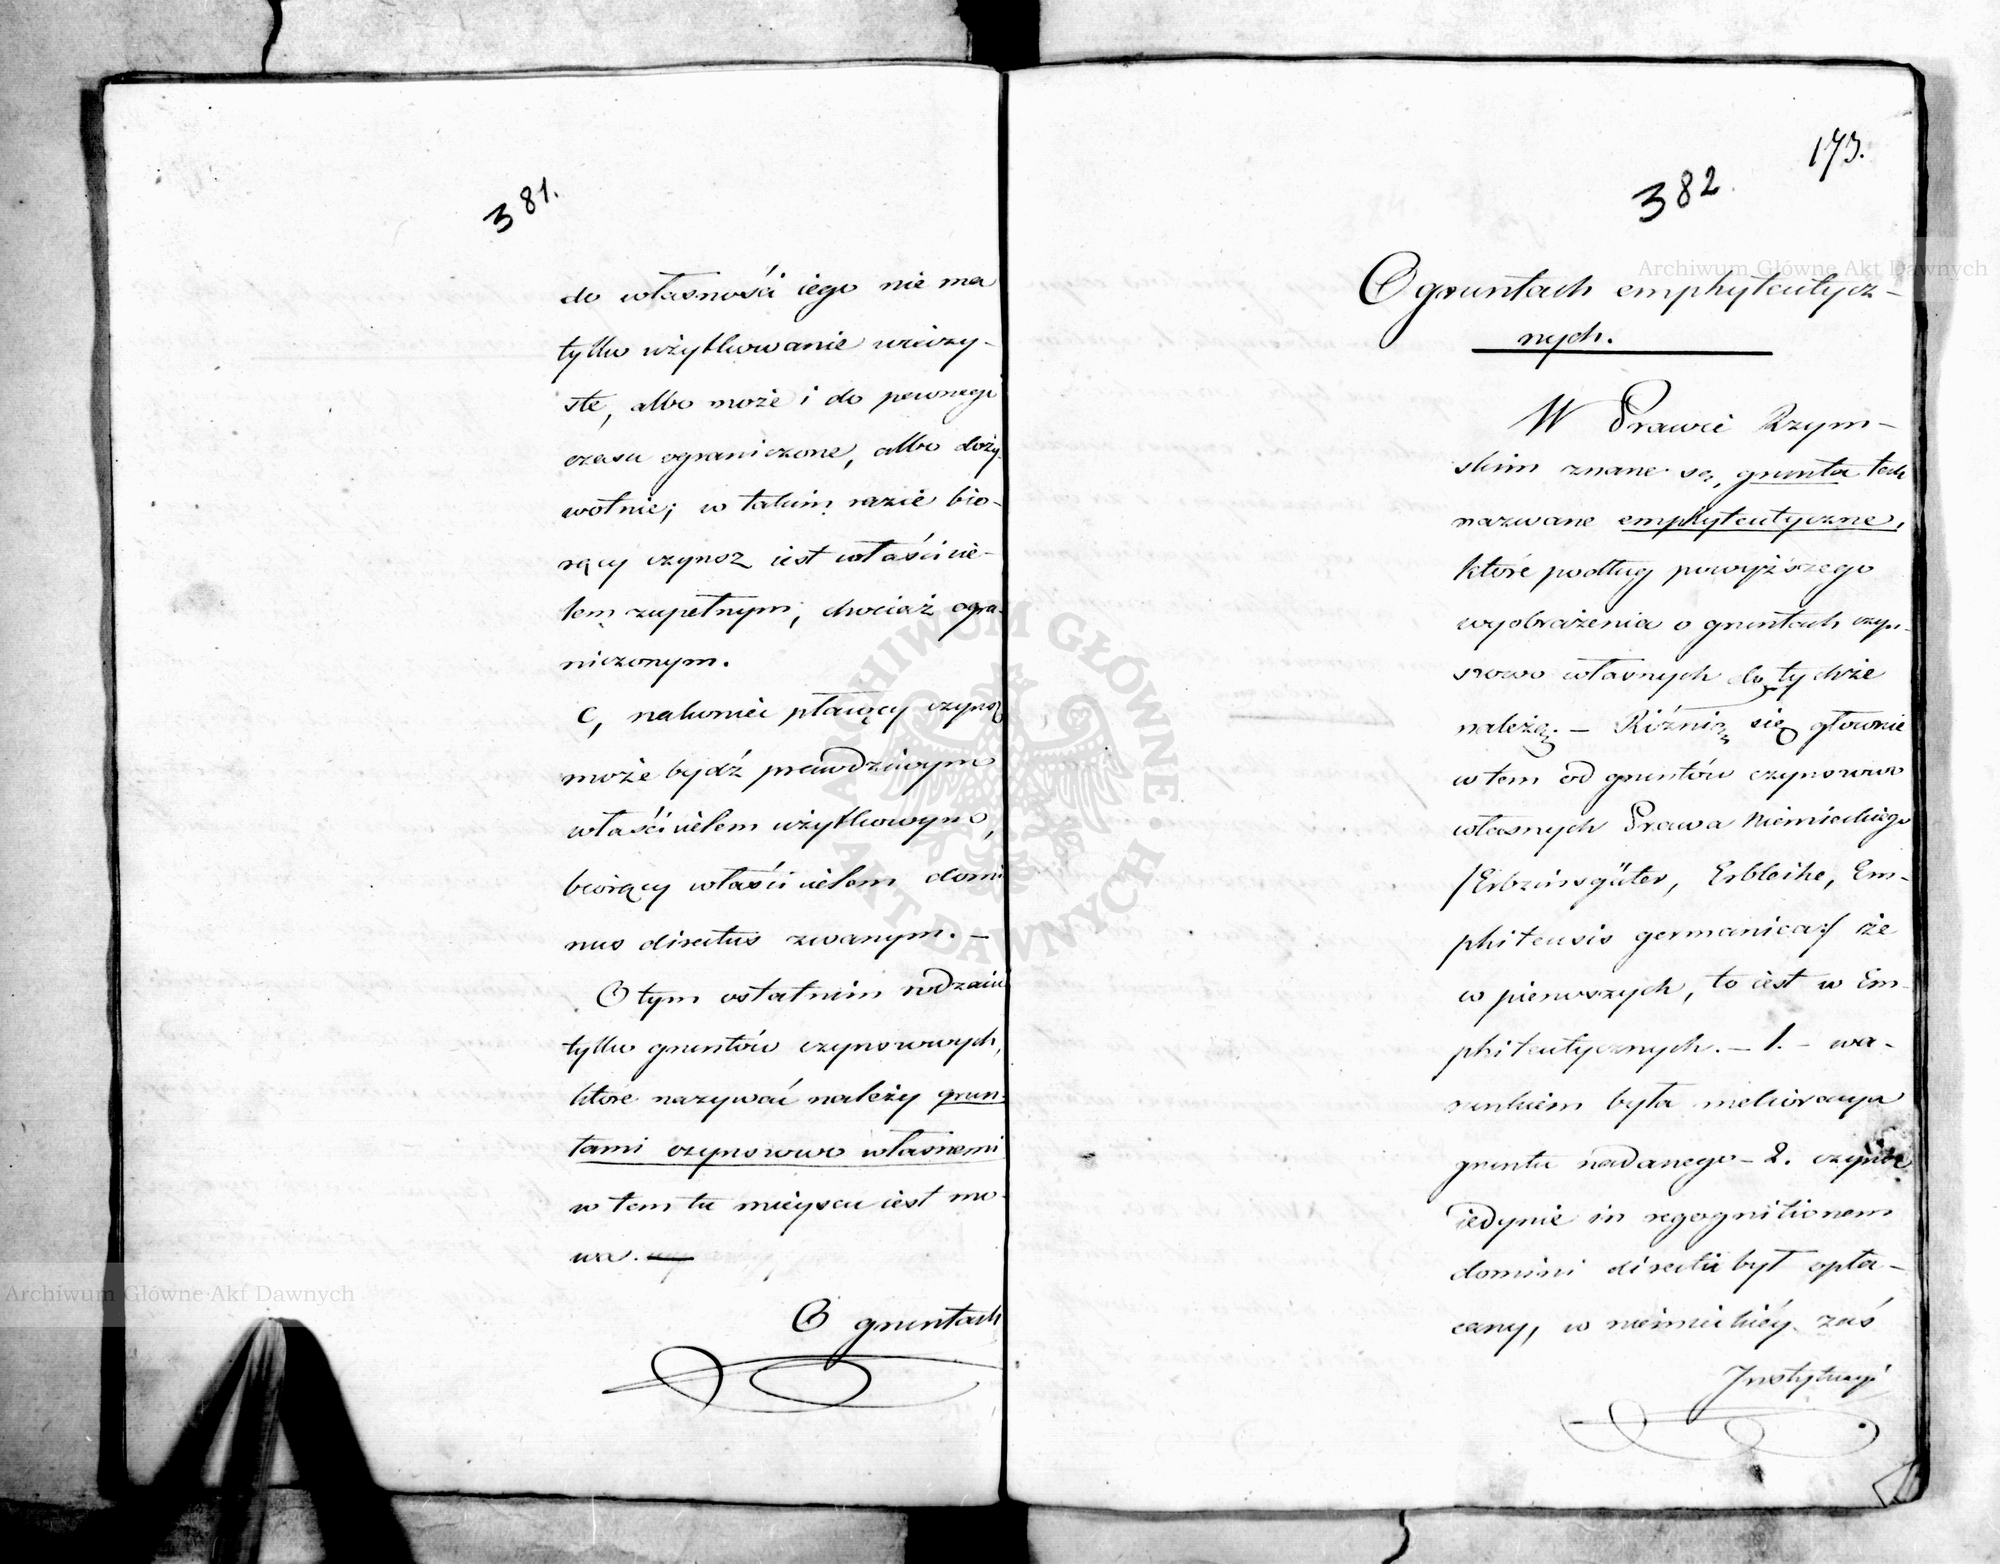 381.
do własności iego nie ma
tylko użytkowanie wieczy-
ste, albo może i do pewnego
czasu ograniczone, albo doży-
wotnie; w takim razie bio-
rący czynsz iest właścicie-
lem zupełnym, chociaż ogra-
niczonym.
c, nakoniec płacący czynsz
może bydź prawdziwym
właścicielem użytkowym,
biorący właścicielem domi
nus directus zwanym. —
O tym ostatnim rodzaiu
tylko gruntów czynszowych,
które nazywać należy grun-
tami czynszowo własnemi
w tem tu mieyscu iest mo-
wa. —
O gruntach
173.
382.
O gruntach emphyteutycz-
nych.
W Prawie Rzym-
skim znane są, grunta tak
nazwane emphyteutyczne,
które podług powyższego
wyobrażenia o gruntach czyn-
szowo własnych do tychże
należą. — Różnią się głownie
w tem od gruntów czynszowo
własnych Prawa Niemieckiego
/Erbzinsgüter, Erbleihe, Em-
phiteusis germanica:/ że
w pierwszych, to iest w Em-
phiteutycznych. — 1. — wa-
runkiem była melioracya
gruntu nadanego — 2. czynsz
iedynie in regognitionem
domini directi był opła-
cany, w niemieckiéy zaś
Instytucyi
Archiwum Główne Akt Dawnych
Archiwum Główne Akt Dawnych
ARCHIWUM GŁÓWNE AKT DAWNYCH